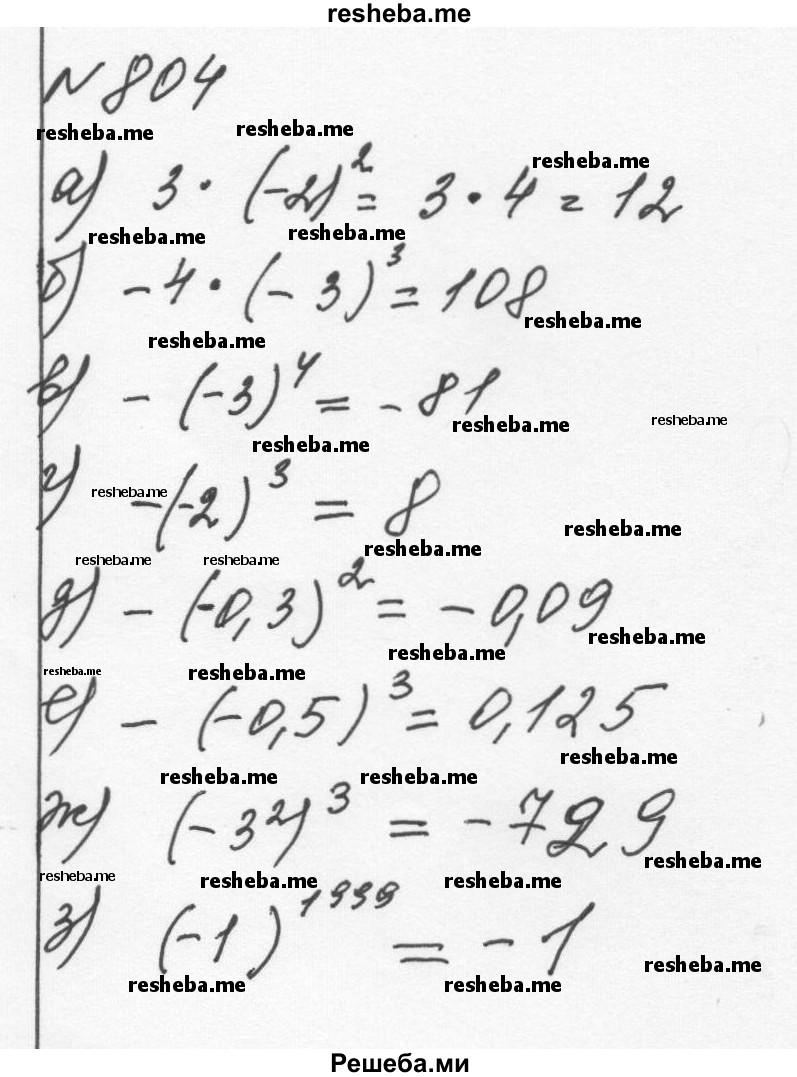 resheba.me
№ 804
resheba.me resheba.me resheba.me
а) 3 · (-2)² = 3 · 4 = 12
resheba.me resheba.me
б) - 4 · (- 3)³ = 108
resheba.me
resheba.me
в) - (-3)⁴ = - 81
resheba.me resheba.me
resheba.me
г) -(-2)³ = 8
resheba.me resheba.me
resheba.me
resheba.me resheba.me
д) - (-0,3)² = - 0,09
resheba.me
resheba.me
resheba.me resheba.me
е) - (-0,5)³ = 0,125
resheba.me
resheba.me resheba.me
ж) (-3²)³ = - 729
resheba.me
resheba.me resheba.me resheba.me
з) (-1)¹⁹⁹⁹ = - 1
resheba.me
resheba.me resheba.me
Решеба.ми